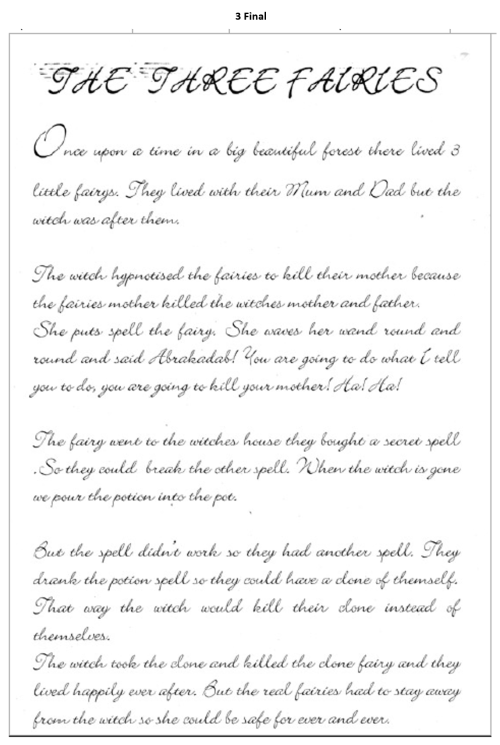 3 Final
THE THREE FAIRIES
Once upon a time in a big beautiful forest there lived 3
little fairys. They lived with their Mum and Dad but the
witch was after them.
The witch hypnotised the fairies to kill their mother because
the fairies mother killed the witches mother and father.
She puts spell the fairy. She waves her wand round and
round and said Abrakadab! You are going to do what I tell
you to do, you are going to kill your mother! Ha! Ha!
The fairy went to the witches house they bought a secret spell
.So they could break the other spell. When the witch is gone
we pour the potion into the pot.
But the spell didn't work so they had another spell. They
drank the potion spell so they could have a clone of themself.
That way the witch would kill their clone instead of
themselves.
The witch took the clone and killed the clone fairy and they
lived happily ever after. But the real fairies had to stay away
from the witch so she could be safe for ever and ever.